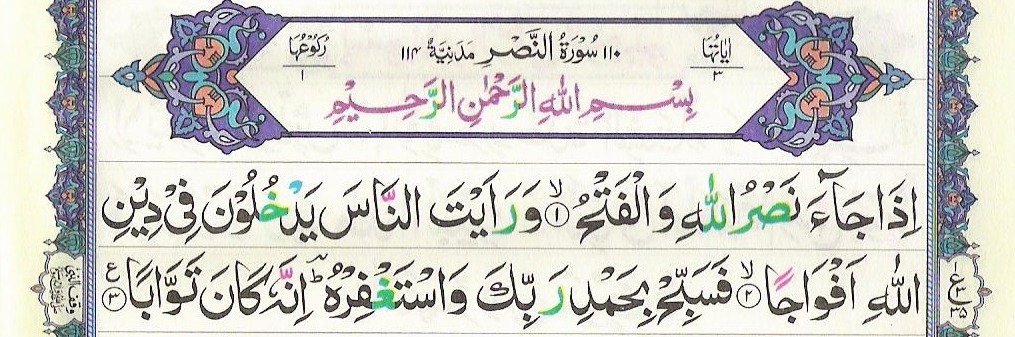 اٰيَاتُهَا ٣
١١٠ سُوْرَةُ النَّصْرِ مَدَنِيَّةٌ ١١٤
رُكُوْعُهَا ١
بِسْمِ اللّٰهِ الرَّحْمٰنِ الرَّحِيْمِ
اِذَا جَآءَ نَصْرُ اللّٰهِ وَالْفَتْحُ ۙ﴿١﴾ وَرَاَيْتَ النَّاسَ يَدْخُلُوْنَ فِيْ دِيْنِ
اللّٰهِ اَفْوَاجًا ۙ﴿٢﴾ فَسَبِّحْ بِحَمْدِ رَبِّكَ وَاسْتَغْفِرْهُ ؕ اِنَّهٗ كَانَ تَوَّابًا ﴿٣﴾ ع
ع ٣٥